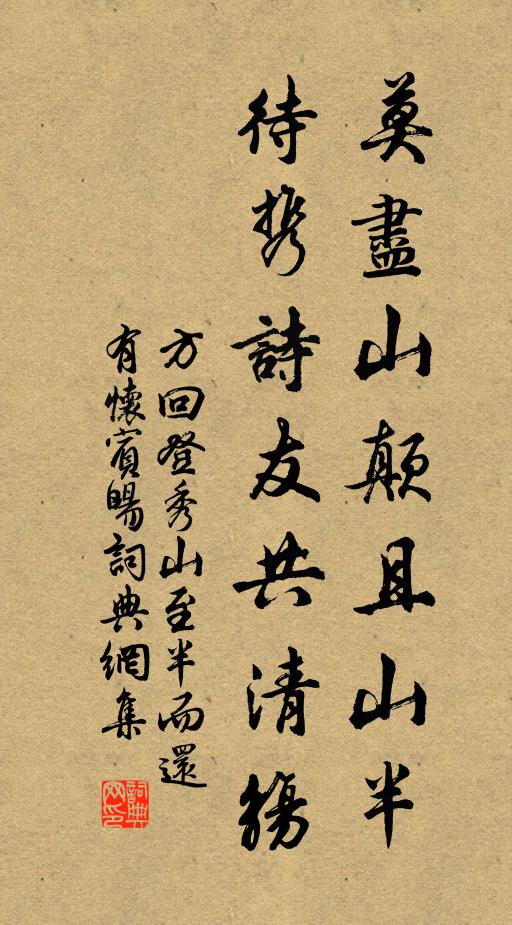 莫盡山顛且山半
待携詩友共清觴
方回登秀山至半而還
有懷賓暘詞典網集
詞典网印